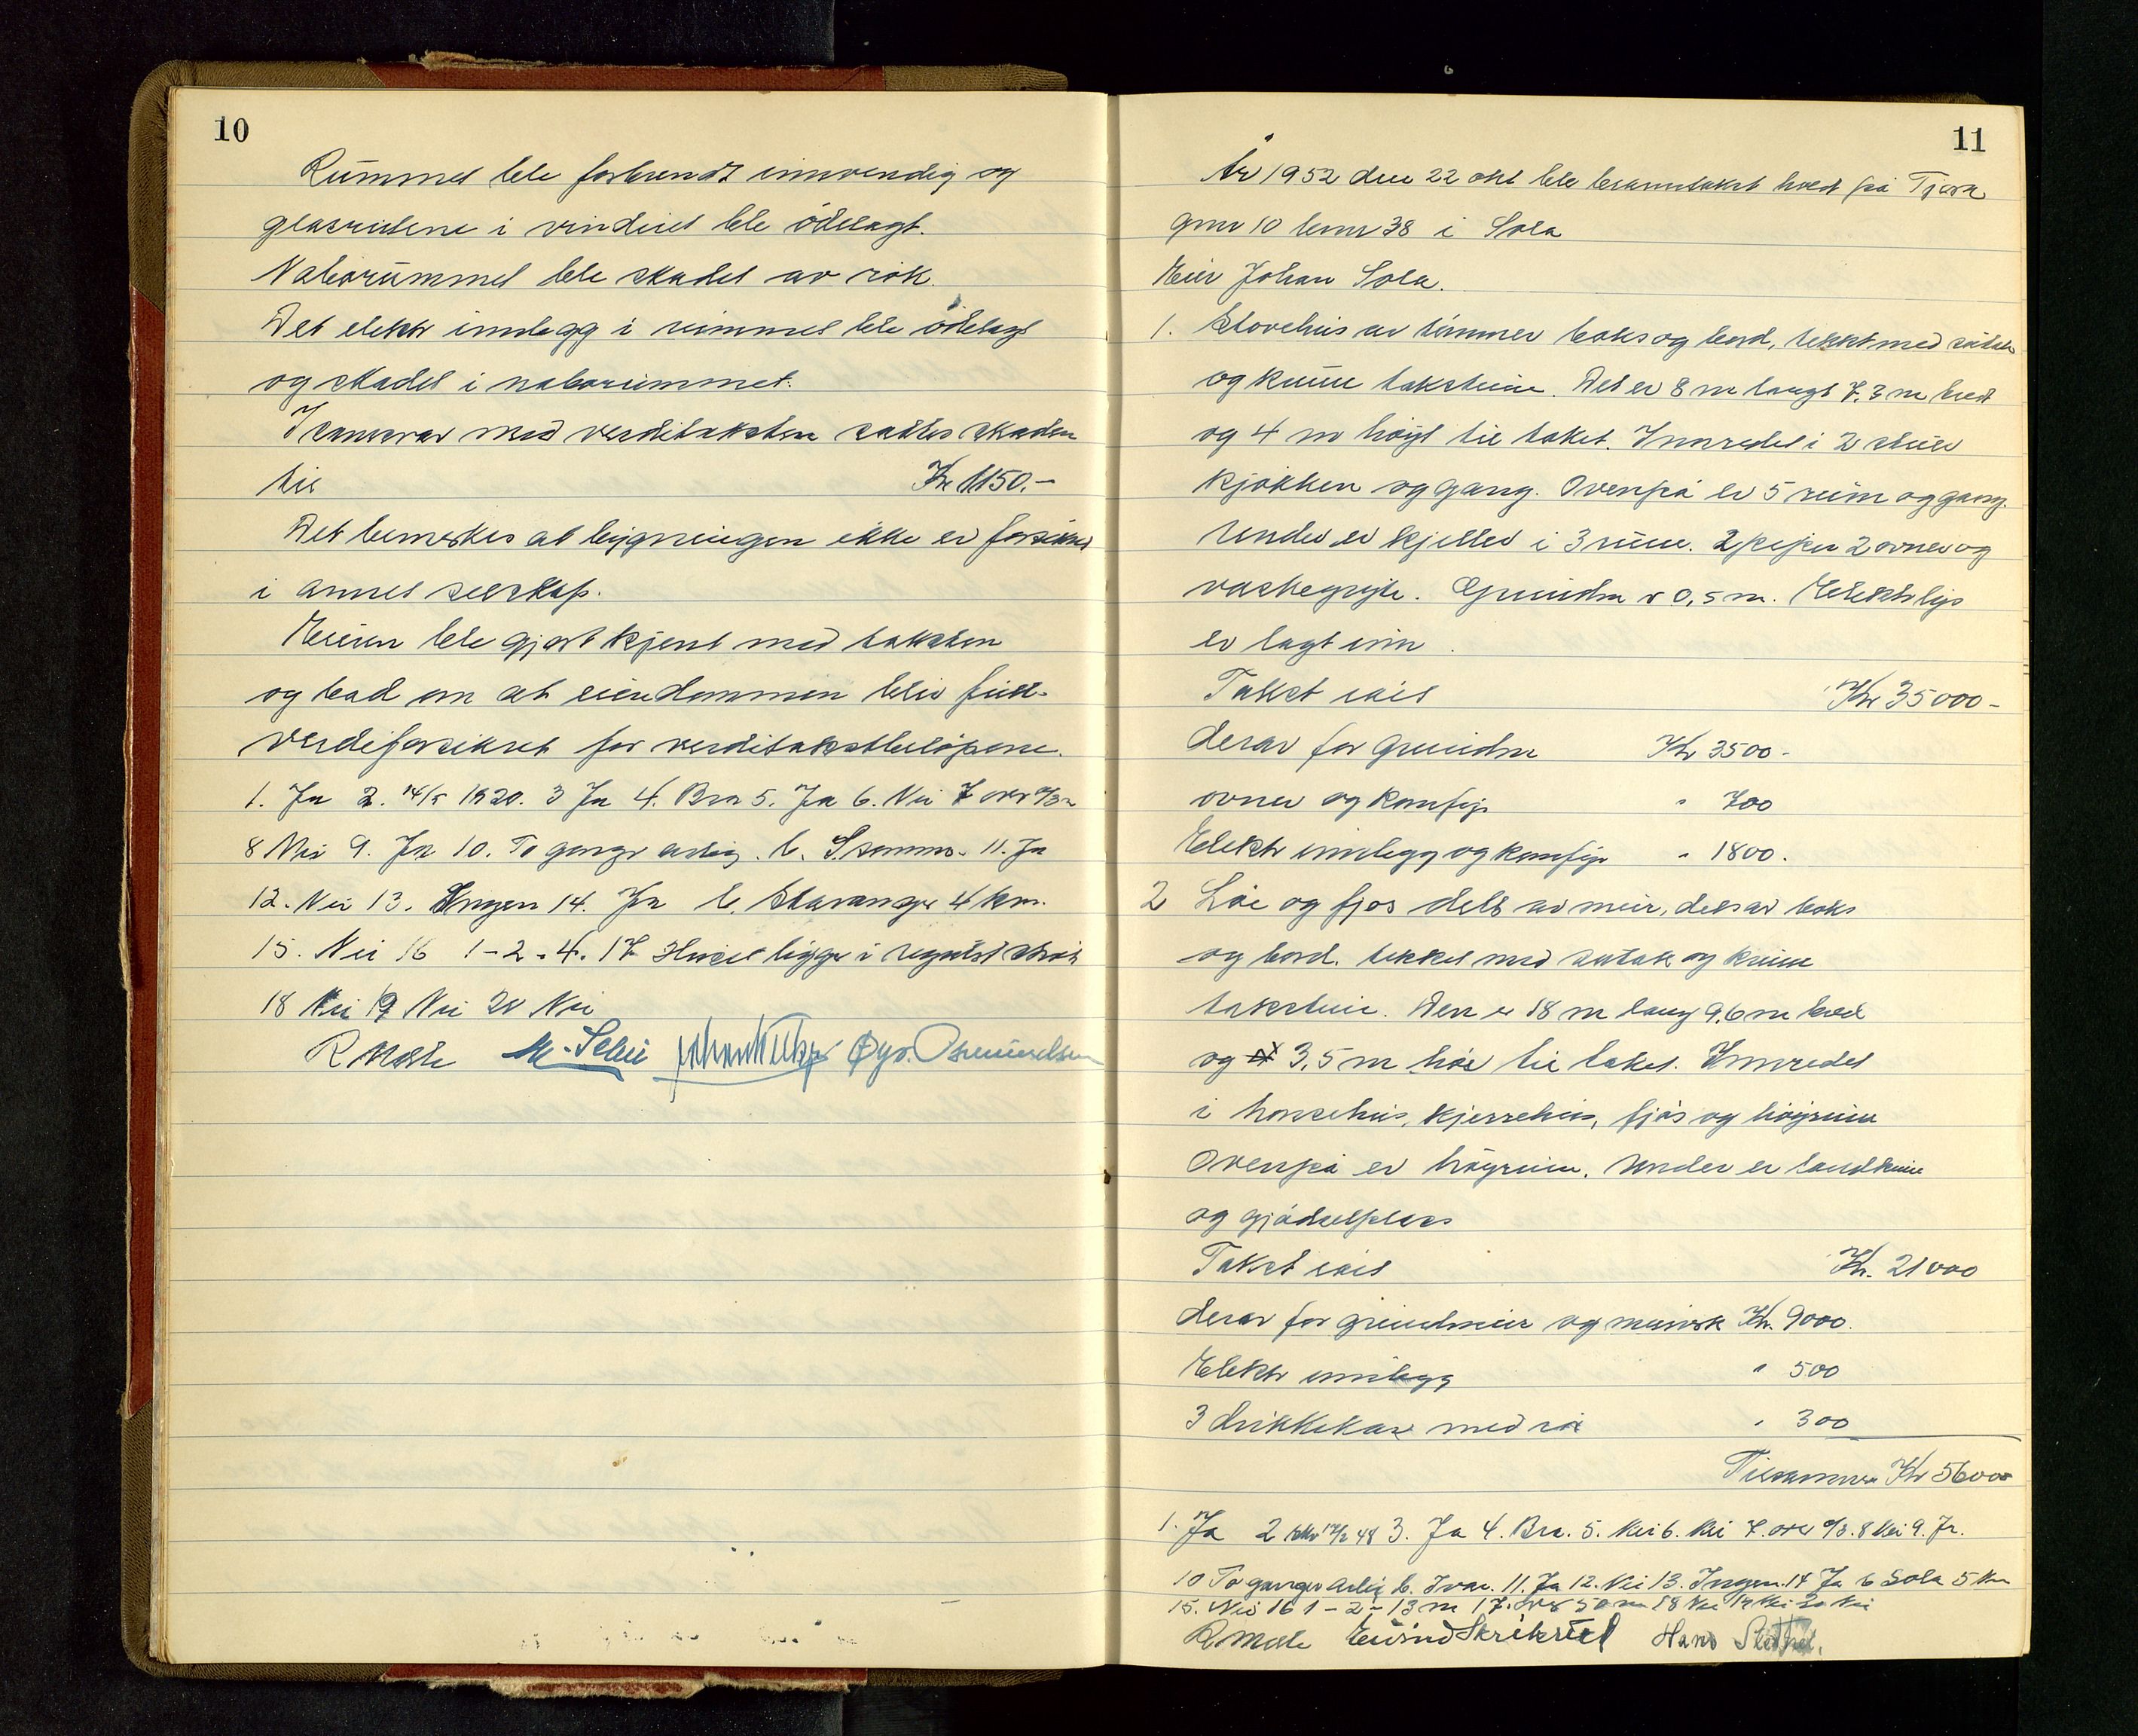 10
Rummet ble forbrendt innvendig og
glasrutene i vinduet ble ödelagt.
Naborummet ble skadet av rök.
Det elektr innlegg i rummet ble ödelagt
og skadet i naborummet.
I samsvar med verditaksten sattes skaden
til Kr 1150.-
Det bemerkes at bygningen ikke er forsikret
i annet selskap.
Eieren ble gjort kjent med taksten
og bad om at eiendommen blir full-
verdiforsikret for verditakstbelöpene.
1. Ja 2. 14/5 1920. 3 Ja 4. Bra 5. Ja 6. Nei 7 over
8 Nei 9. Ja 10. To ganger årlig. b. Samme. 11. Ja
12. Nei 13. Ingen 14. Ja b. Stavanger 4 km.
15. Nei 16 1-2-4. 17 Huset ligger i regulert strök
18 Nei 19 Nei 20 Nei
År 1952 den 22 okt ble branntakst holdt på Tjora
11
gnr 10 bnr 38 i Sola
Eier Johan Sola.
1. Stovehus av tömmer boks og bord, tekket med sutak
og krum takstein. Det er 8 m langt 7,3 m bredt
og 4 m höyt til taket. Innredet i 2 stuer
kjökken og gang. Ovenpå er 5 rum og gang.
Under er kjeller i 3 rum. 2 piper 2 ovner og
vaskegryte. Grunden er 0,5 m. Elektr lys
er lagt inn.
Takst satt Kr 35000-
derav for grunden Kr 3500-
ovner og komfyr " 700
Elektr innlegg og komfyr " 1800.
2 Löe og fjos dels av mur, dels av boks
og bord. tekket med sutak og krum
takstein. Den er 18 m lang 9,6 m bred
og 3,5 m höi til taket. Innredet
i hossehus, kjerrehus, fjös og höyrum
Ovenpå er höyrum. Under er landkum
og gjödselplass
Takst satt Kr. 21000
derav for grundmur og murverk Kr. 9000.
Elektr innlegg " 500
3 drikkekar med rör " 300
Tilsammen Kr 56000
1. Ja 2 48 3. Ja 4. Bra. 5. Nei 6. Nei 7. over 8 Nei 9. Ja.
10 To ganger årlig b. Ivar. 11. Ja 12. Nei 13. Ingen. 14 Ja b Sola 5 km
15. Nei 16 1-2-13 m 17. over 50 m 18 Nei 19 Nei 20 Nei
Eivind Skrikstel Hans